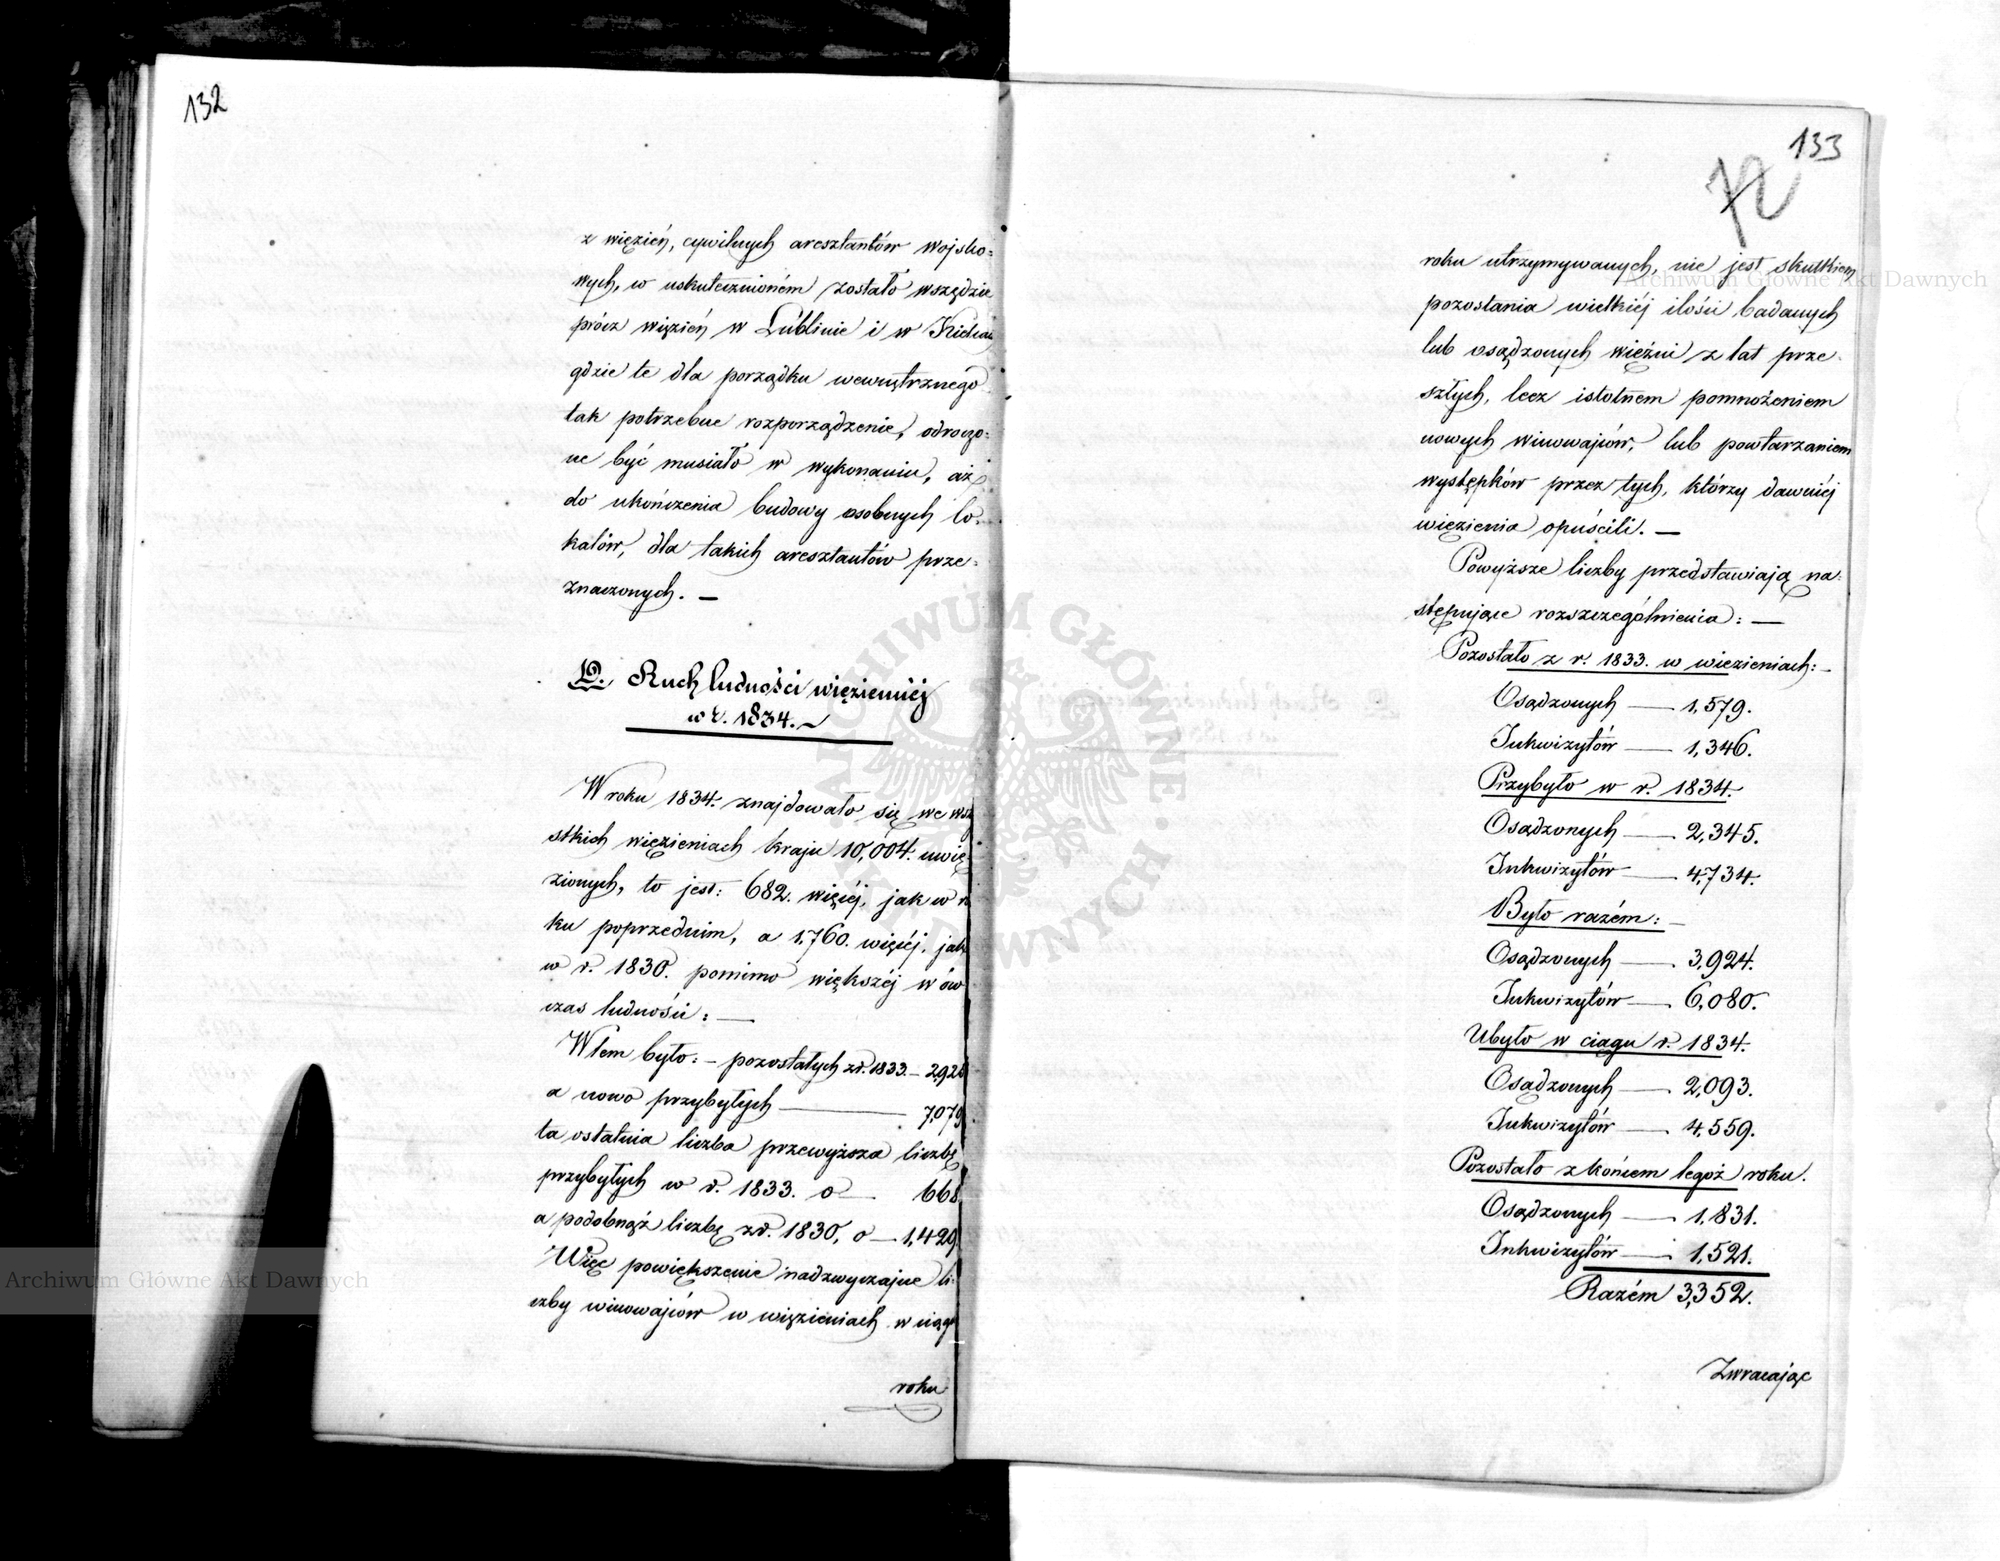 132
z więzień, cywilnych aresztantów wojsko=
wych, w uskutecznioném zostało wszędzie
prócz więzień w Lublinie i w Kielcach
gdzie te dla porządku wewnętrznego
tak potrzebne rozporządzenie, odroczo=
ne być musiało w wykonaniu, aż
do ukończenia budowy osobnych lo=
kalów, dla takich aresztantów prze=
znaczonych. —
D. Ruch ludności więziennéj
w r. 1834. ~
W roku 1834. znajdowało się we wszy
stkich więzieniach kraju 10,004. uwię
zionych, to jest: 682. więcéj, jak w ro
ku poprzednim, a 1,760. więcéj, jak
w r. 1830. pomimo większéj w ów
czas ludności: —
W tem było: — pozostałych z r. 1833. — 2,925
a nowo przybyłych — 7,079
ta ostatnia liczba przewyższa liczbę
przybyłych w r. 1833. o — 668.
a podobnąż liczbę z r. 1830, o — 1,429.
Więc powiększenie nadzwyczajne li=
czby winowajców w więzieniach w ciągu
roku
133
72
roku utrzymywanych, nie jest skutkiem
pozostania wielkiéj ilości badanych
lub osądzonych więźni z lat prze=
szłych, lecz istotnem pomnożeniem
nowych winowajców, lub powtarzaniem
występków przez tych, którzy dawniéj
więzienia opuścili. —
Powyższe liczby przedstawiają na=
stępujące rozszczególnienia: —
Pozostało z r. 1833. w więzieniach: —
Osądzonych — 1,579.
Inkwizytów — 1,346.
Przybyło w r. 1834.
Osądzonych — 2,345.
Inkwizytów — 4,734.
Było razém: —
Osądzonych — 3,924.
Inkwizytów — 6,080.
Ubyło w ciągu r. 1834.
Osądzonych — 2,093.
Inkwizytów — 4,559.
Pozostało z końcem tegoż roku.
Osądzonych — 1,831.
Inkwizytów — 1,521.
Razém 3,352.
Zwracając
Archiwum Główne Akt Dawnych
Archiwum Główne Akt Dawnych
ARCHIWUM GŁÓWNE AKT DAWNYCH